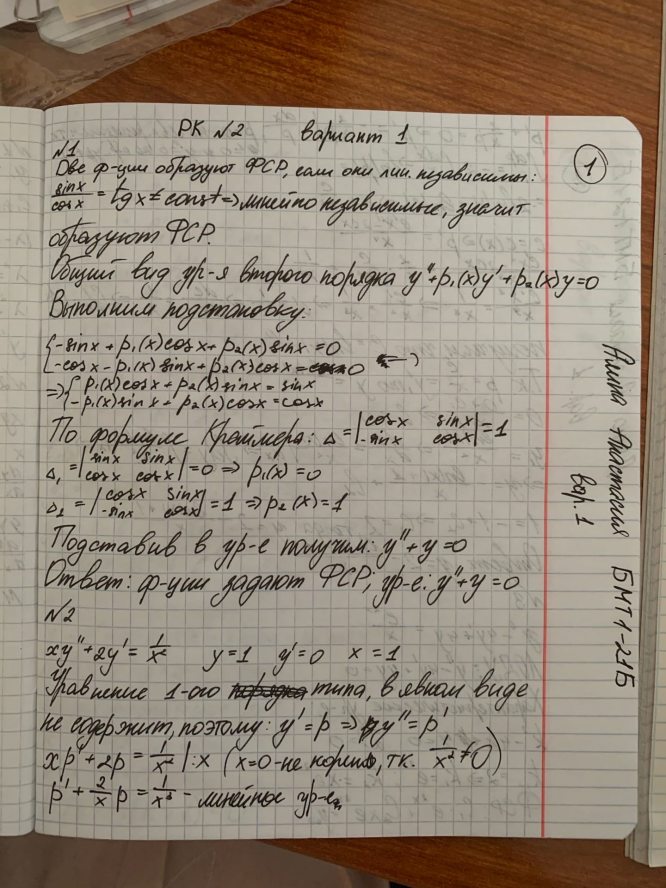 РК №2 вариант 1
№1
Две ф-ции образуют ФСР, если они лин. независимы:
sinx/cosx = tgx ≠ const => линейно независимые, значит
образуют ФСР.
Общий вид ур-я второго порядка y''+p₁(x)y'+p₂(x)y=0
Выполним подстановку:
{-sinx + p₁(x)cosx + p₂(x)sinx = 0
{-cosx - p₁(x)sinx + p₂(x)cosx = 0
=> { p₁(x)cosx + p₂(x)sinx = sinx
{ -p₁(x)sinx + p₂(x)cosx = cosx
По формуле Краммера: Δ = |cosx sinx; -sinx cosx| = 1
Δ₁ = |sinx sinx; cosx cosx| = 0 => p₁(x) = 0
Δ₂ = |cosx sinx; -sinx cosx| = 1 => p₂(x) = 1
Подставив в ур-е получим: y''+y=0
Ответ: ф-ции задают ФСР; ур-е: y''+y=0
№2
xy''+2y' = 1/x² y=1 y'=0 x=1
Уравнение 1-ого типа, в явном виде
не содержит, поэтому: y'=p => y''=p'
xp'+2p = 1/x² |:x (x=0-не корень, тк. 1/x² ≠ 0)
p' + 2/x p = 1/x³ - линейное ур-е
1
Алита Анастасия БМТ1-21Б
вар. 1